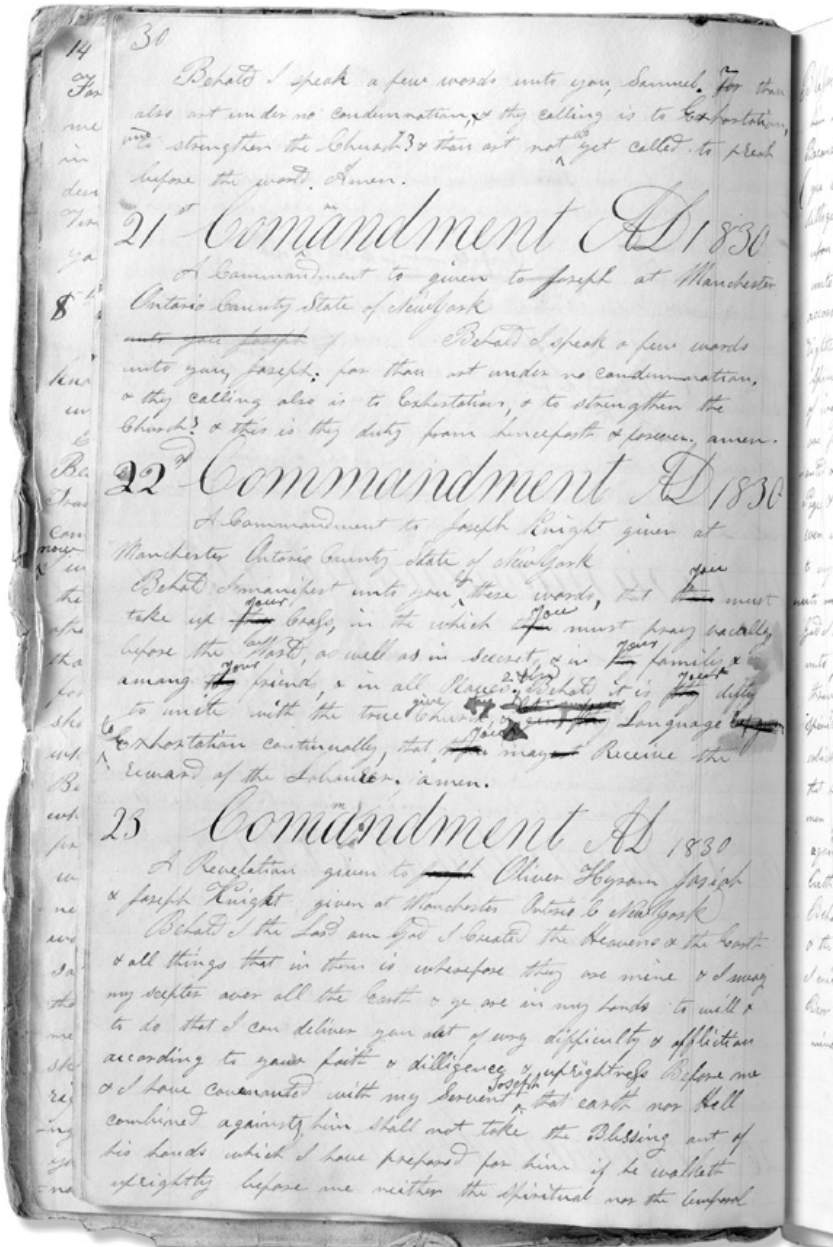 30
Behold I speak a few words unto you, Samuel. For thou
also art under no condemnation, & thy calling is to Exhortation,
and to strengthen the Church? & thou art not as yet called to preach
before the world, Amen.
21st Commandment AD 1830
A Commandment to given to Joseph at Manchester
Ontario County State of New York
unto you Joseph Behold I speak a few words
unto you, Joseph; for thou art under no condemnation,
& thy calling also is to Exhortation, & to strengthen the
Church? & this is thy duty from henceforth & forever. amen.
22nd Commandment AD 1830
A Commandment to Joseph Knight given at
Manchester Ontario County State of New York
Behold I manifest unto you by these words, that thou you must
take up thy your Cross, in the which thou you must pray vocally
before the world, as well as in secret, & in thy your family &
among thy your friends, & in all Places. & Behold it is thy your duty
to unite with the true Church, & give Language
to Exhortation continually, that thou you mayest Receive the
reward of the Labourer. amen.
23 Commandment AD 1830
A Revelation given to Joseph Oliver Hyram Josiah
& Joseph Knight given at Manchester Ontario C New York
Behold I the Lord am God I Created the Heavens & the Earth
& all things that in them is wherefore they are mine & I sway
my scepter over all the Earth & ye are in my hands to will &
to do that I can deliver you out of evry difficulty & affliction
according to your faith & dilligence & uprightness Before me
& I have covenanted with my Servent Joseph that earth nor Hell
combined againsts him shall not take the Blessing out of
his hands which I have prepared for him if he walketh
uprightly before me neither the spiritual nor the temporal
14
For
me
in
8
now